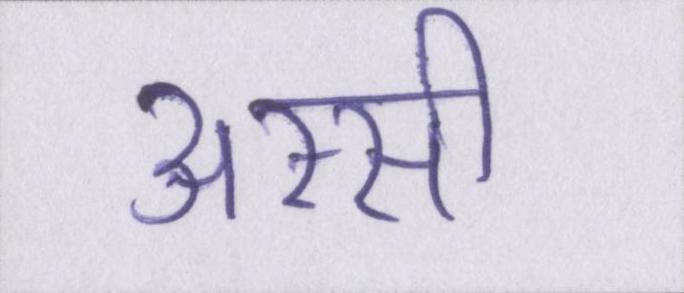 अस्सी